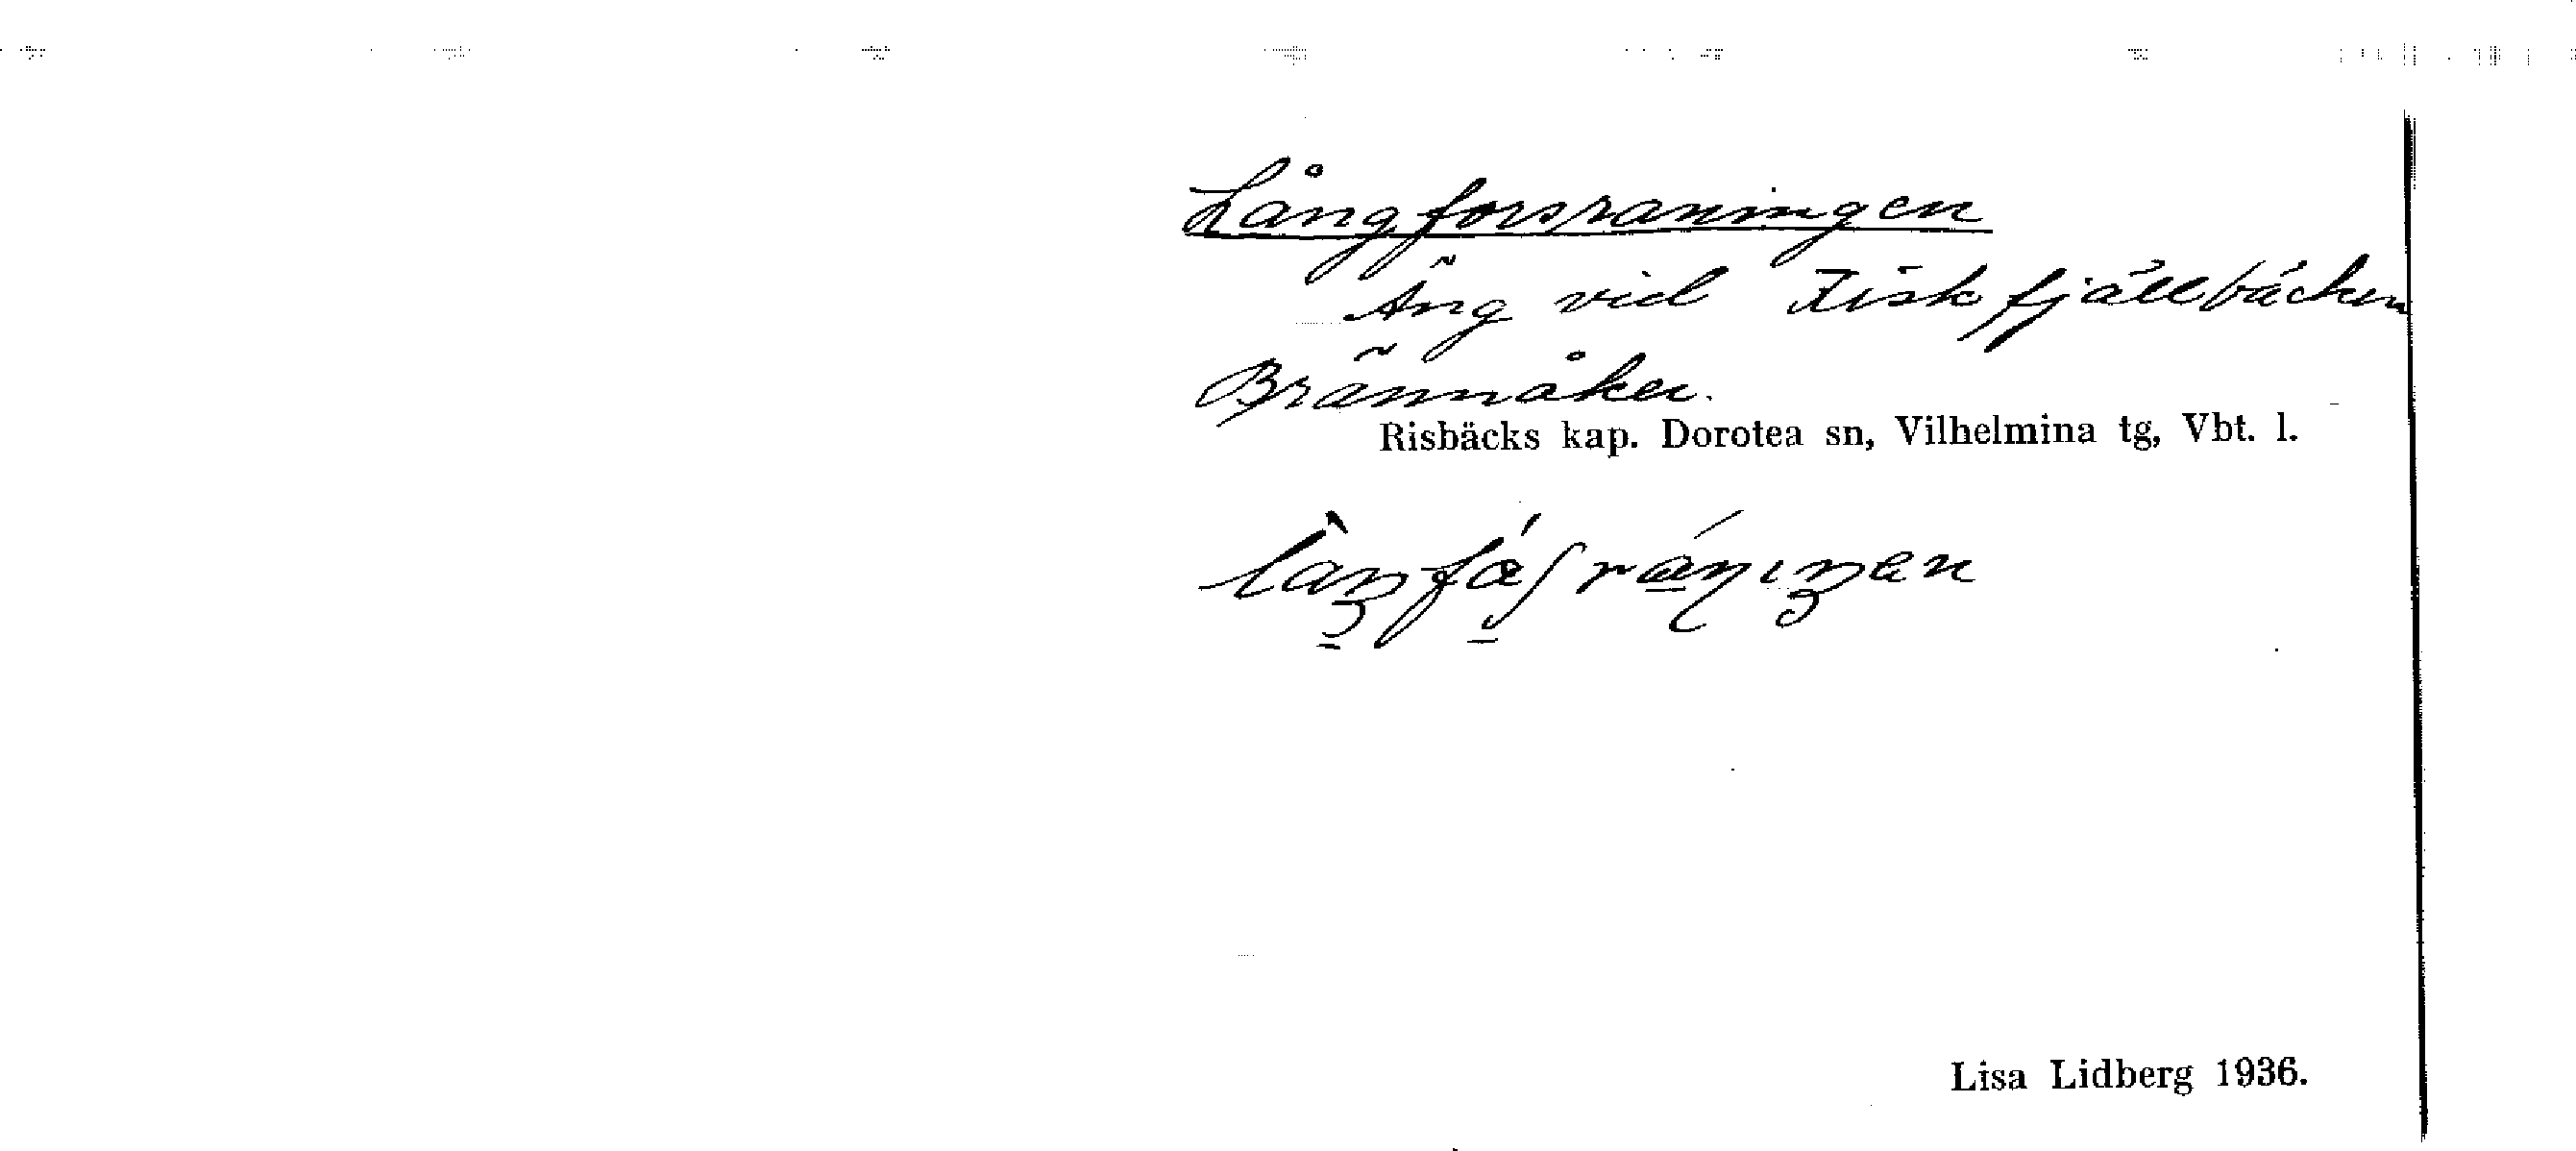 Långforsraningen
Äng vid Fiskfjällbäcken
Brännåker.
Risbäcks kap. Dorotea sn, Vilhelmina tg, Vbt. l.
Lisa Lidberg 1936.